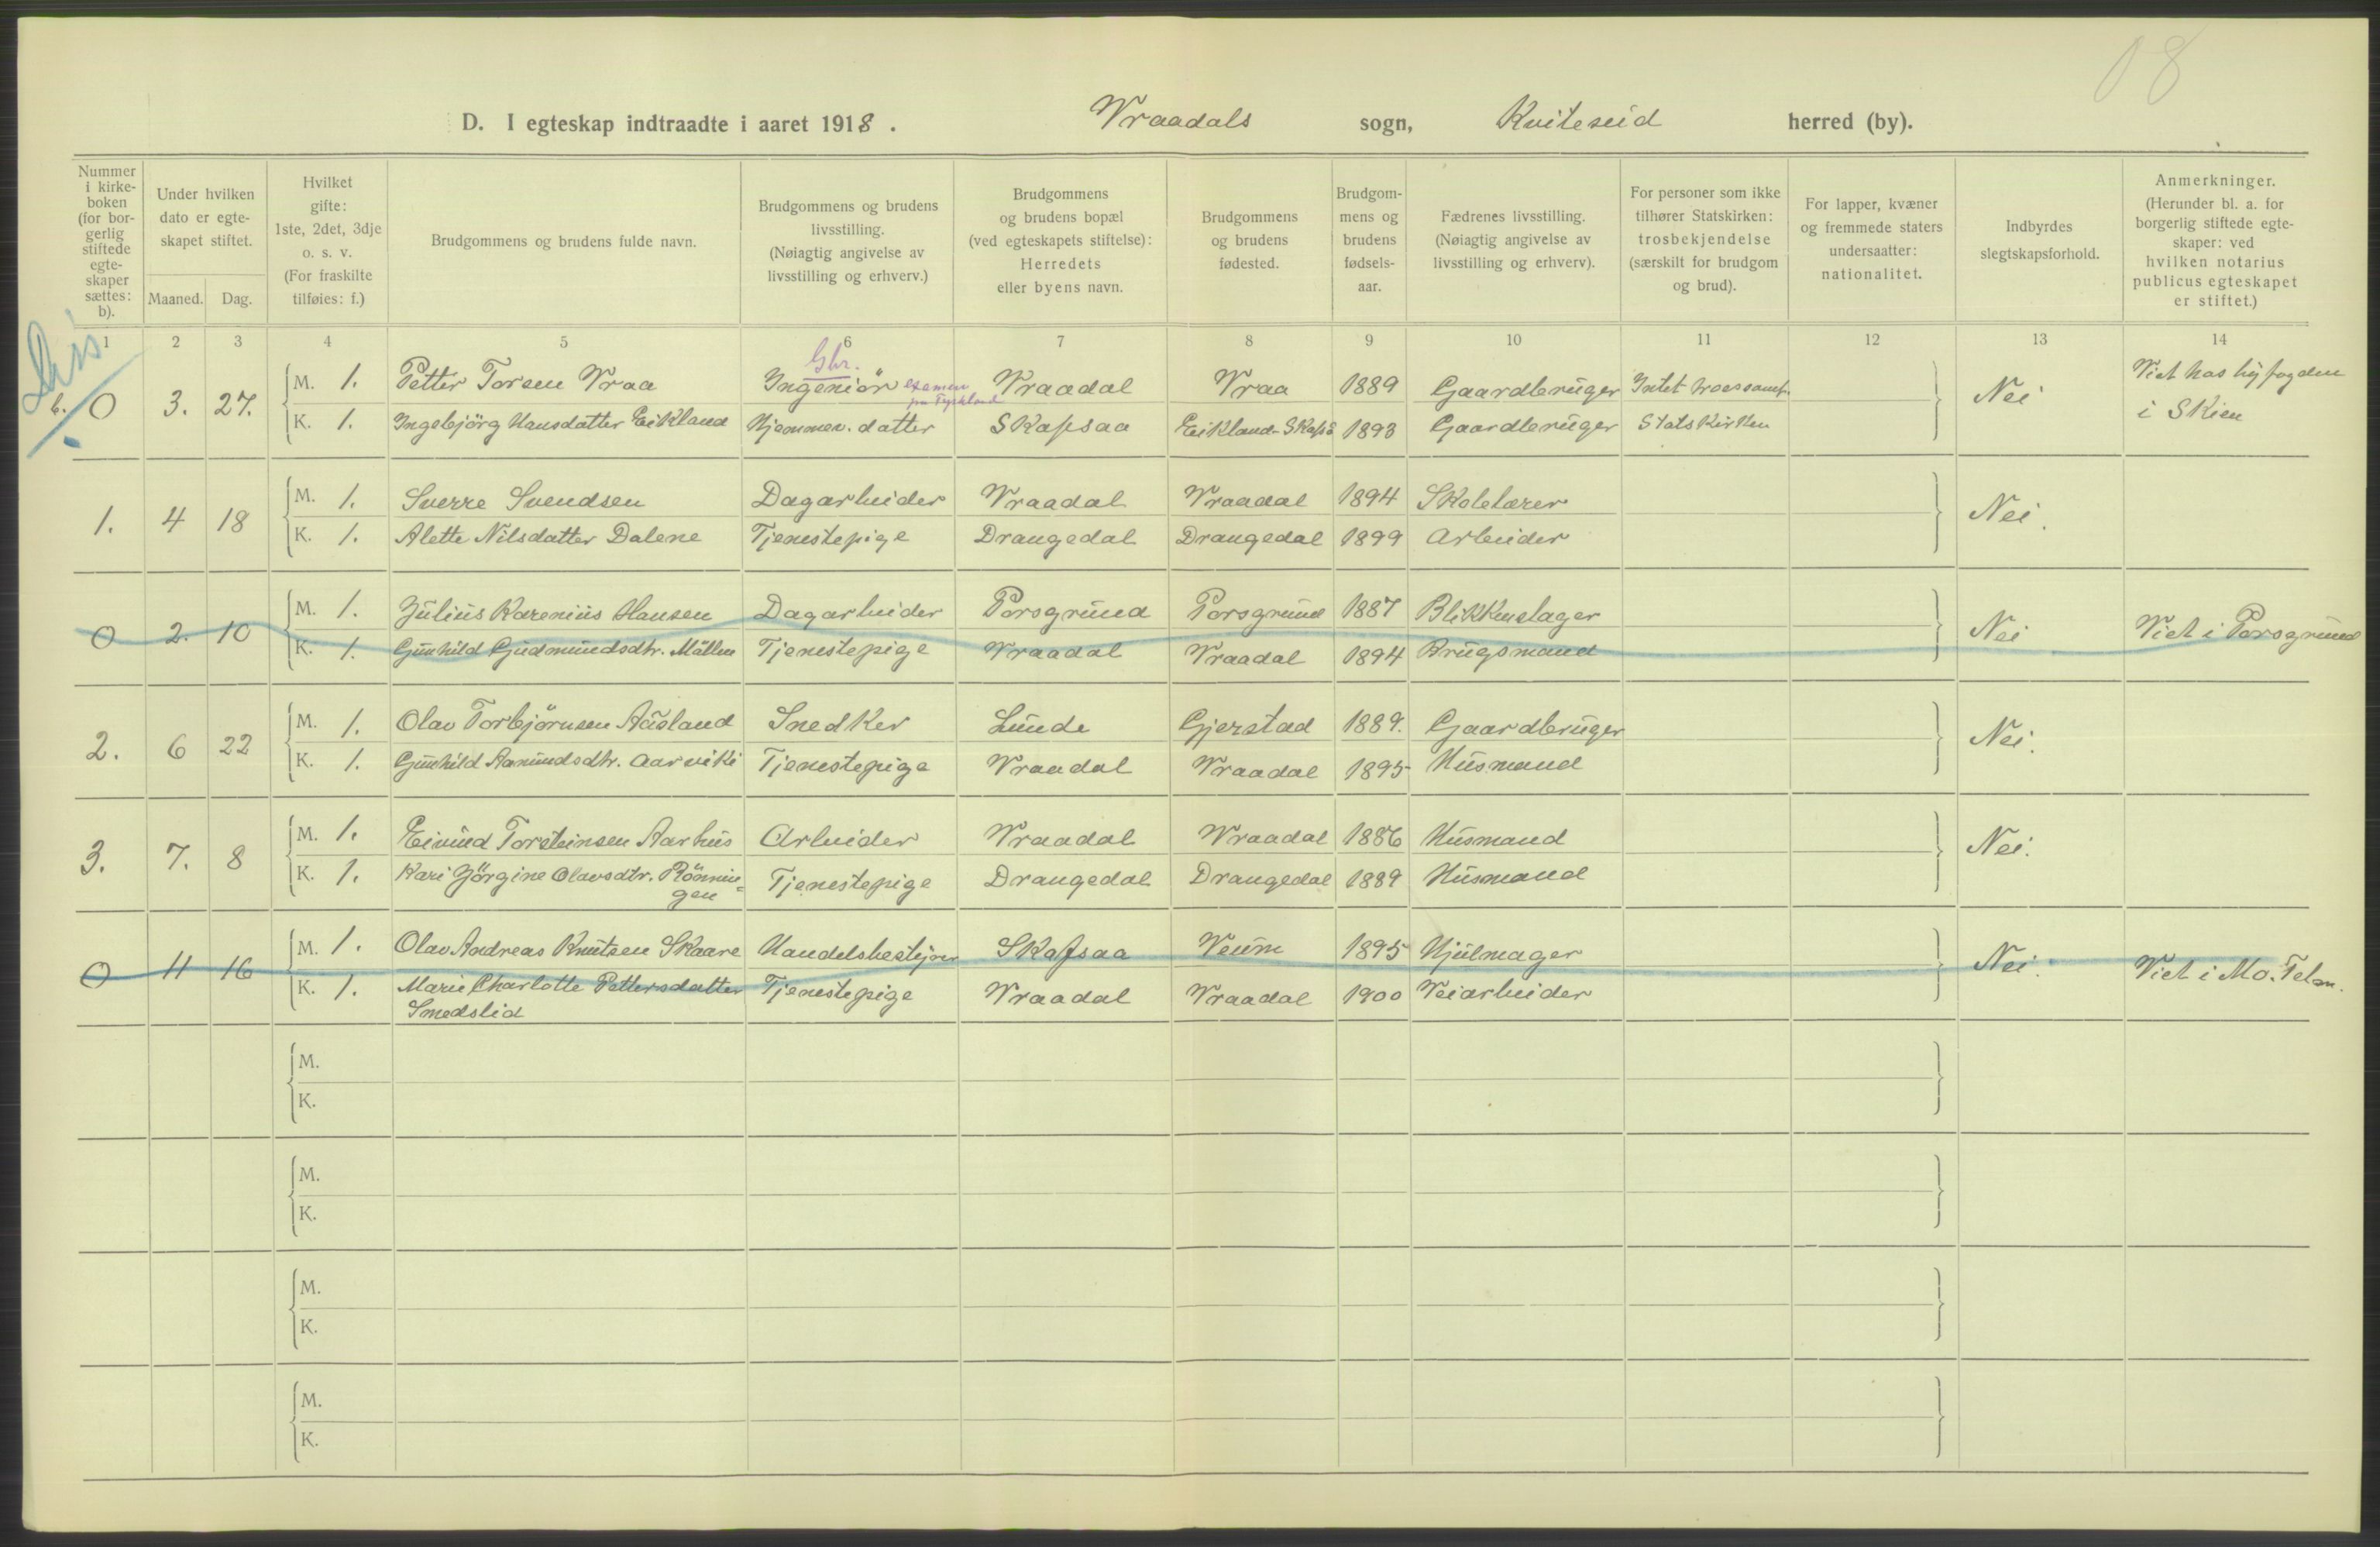 08
D. I egteskap indtraadte i aaret 1918. Vraadals sogn, Kviteseid herred (by).
Nummer i kirke- boken (for bor- gerlig stiftede egte- skaper sættes: b).
Under hvilken dato er egte- skapet stiftet.
Maaned. Dag.
Hvilket gifte: 1ste, 2det, 3dje o. s. v. (For fraskilte tilføies: f.)
Brudgommens og brudens fulde navn.
Brudgommens og brudens livsstilling. (Nøiagtig angivelse av livsstilling og erhverv.)
Brudgommens og brudens bopæl (ved egteskapets stiftelse): Herredets eller byens navn.
Brudgommens og brudens fødested.
Brudgom- mens og brudens fødsels- aar.
Fædrenes livsstilling. (Nøiagtig angivelse av livsstilling og erhverv).
For personer som ikke tilhører Statskirken: trosbekjendelse (særskilt for brudgom og brud).
For lapper, kvæner og fremmede staters undersaatter: nationalitet.
Indbyrdes slegtskapsforhold.
Anmerkninger. (Herunder bl. a. for borgerlig stiftede egte- skaper: ved hvilken notarius publicus egteskapet er stiftet.)
1 2 3 4 5 6 7 8 9 10 11 12 13 14
b. 0 3. 27. M. 1. Petter Torsen Vraa Ingeniör examen fra Tyskland Vraadal Vraa 1889 Gaardbruger Intet troessamf. Nei Viet hos byfogden
K. 1. Ingebjörg Hansdatter Eikland Hjemmev. datter Skafsaa Eikland-Skafså 1893 Gaardbruger Statskirken i Skien
1. 4 18 M. 1. Sverre Svendsen Dagarbeider Vraadal Vraadal 1894 Skolelærer Nei.
K. 1. Alette Nilsdatter Dalene Tjenestepige Drangedal Drangedal 1899 Arbeider
0 2. 10 M. 1. Julius Karenius Hansen Dagarbeider Porsgrund Porsgrund 1887 Blikkenslager Nei Viet i Porsgrund
K. 1. Gunhild Gudmundsdtr. Mållen Tjenestepige Vraadal Vraadal 1894 Brugsmand
2. 6 22 M. 1. Olav Torbjörnsen Aasland Snedker Lunde Gjerstad 1889. Gaardbruger Nei.
K. 1. Gunhild Aamundsdtr. Aarviki Tjenestepige Vraadal Vraadal 1895 Husmand
3. 7. 8 M. 1. Eivind Torsteinsen Aarhus Arbeider Vraadal Vraadal 1886 Husmand Nei.
K. 1. Kari Jörgine Olavsdtr. Rönnin-
gen Tjenestepige Drangedal Drangedal 1889 Husmand
0 11 16 M. 1. Olav Andreas Knutsen Skaare Handelsbestyrer Skafsaa Veum 1895 Hjulmager Nei. Viet i Mo. Telem.
K. 1. Marie Charlotte Pettersdatter Tjenestepige Vraadal Vraadal 1900 Veiarbeider
Smedslid
M.
K.
M.
K.
M.
K.
M.
K.